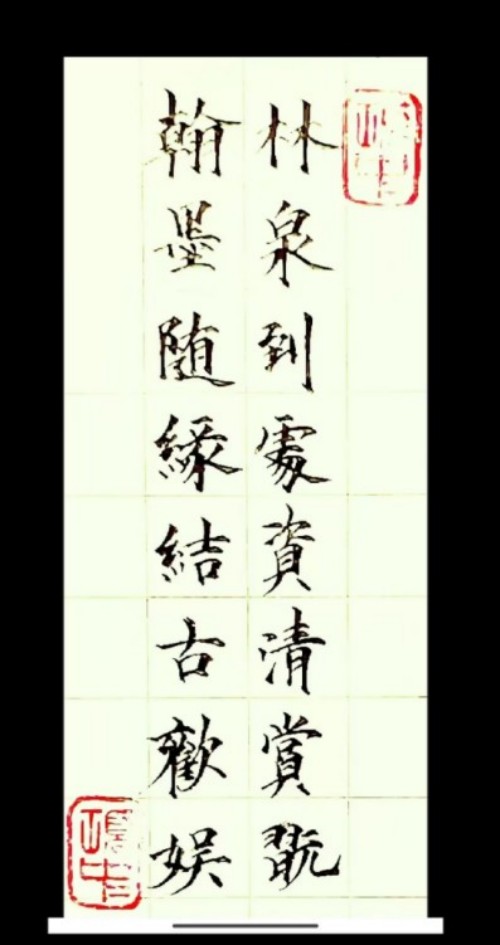 林泉到處資清賞翫
翰墨随緣結古歡娱